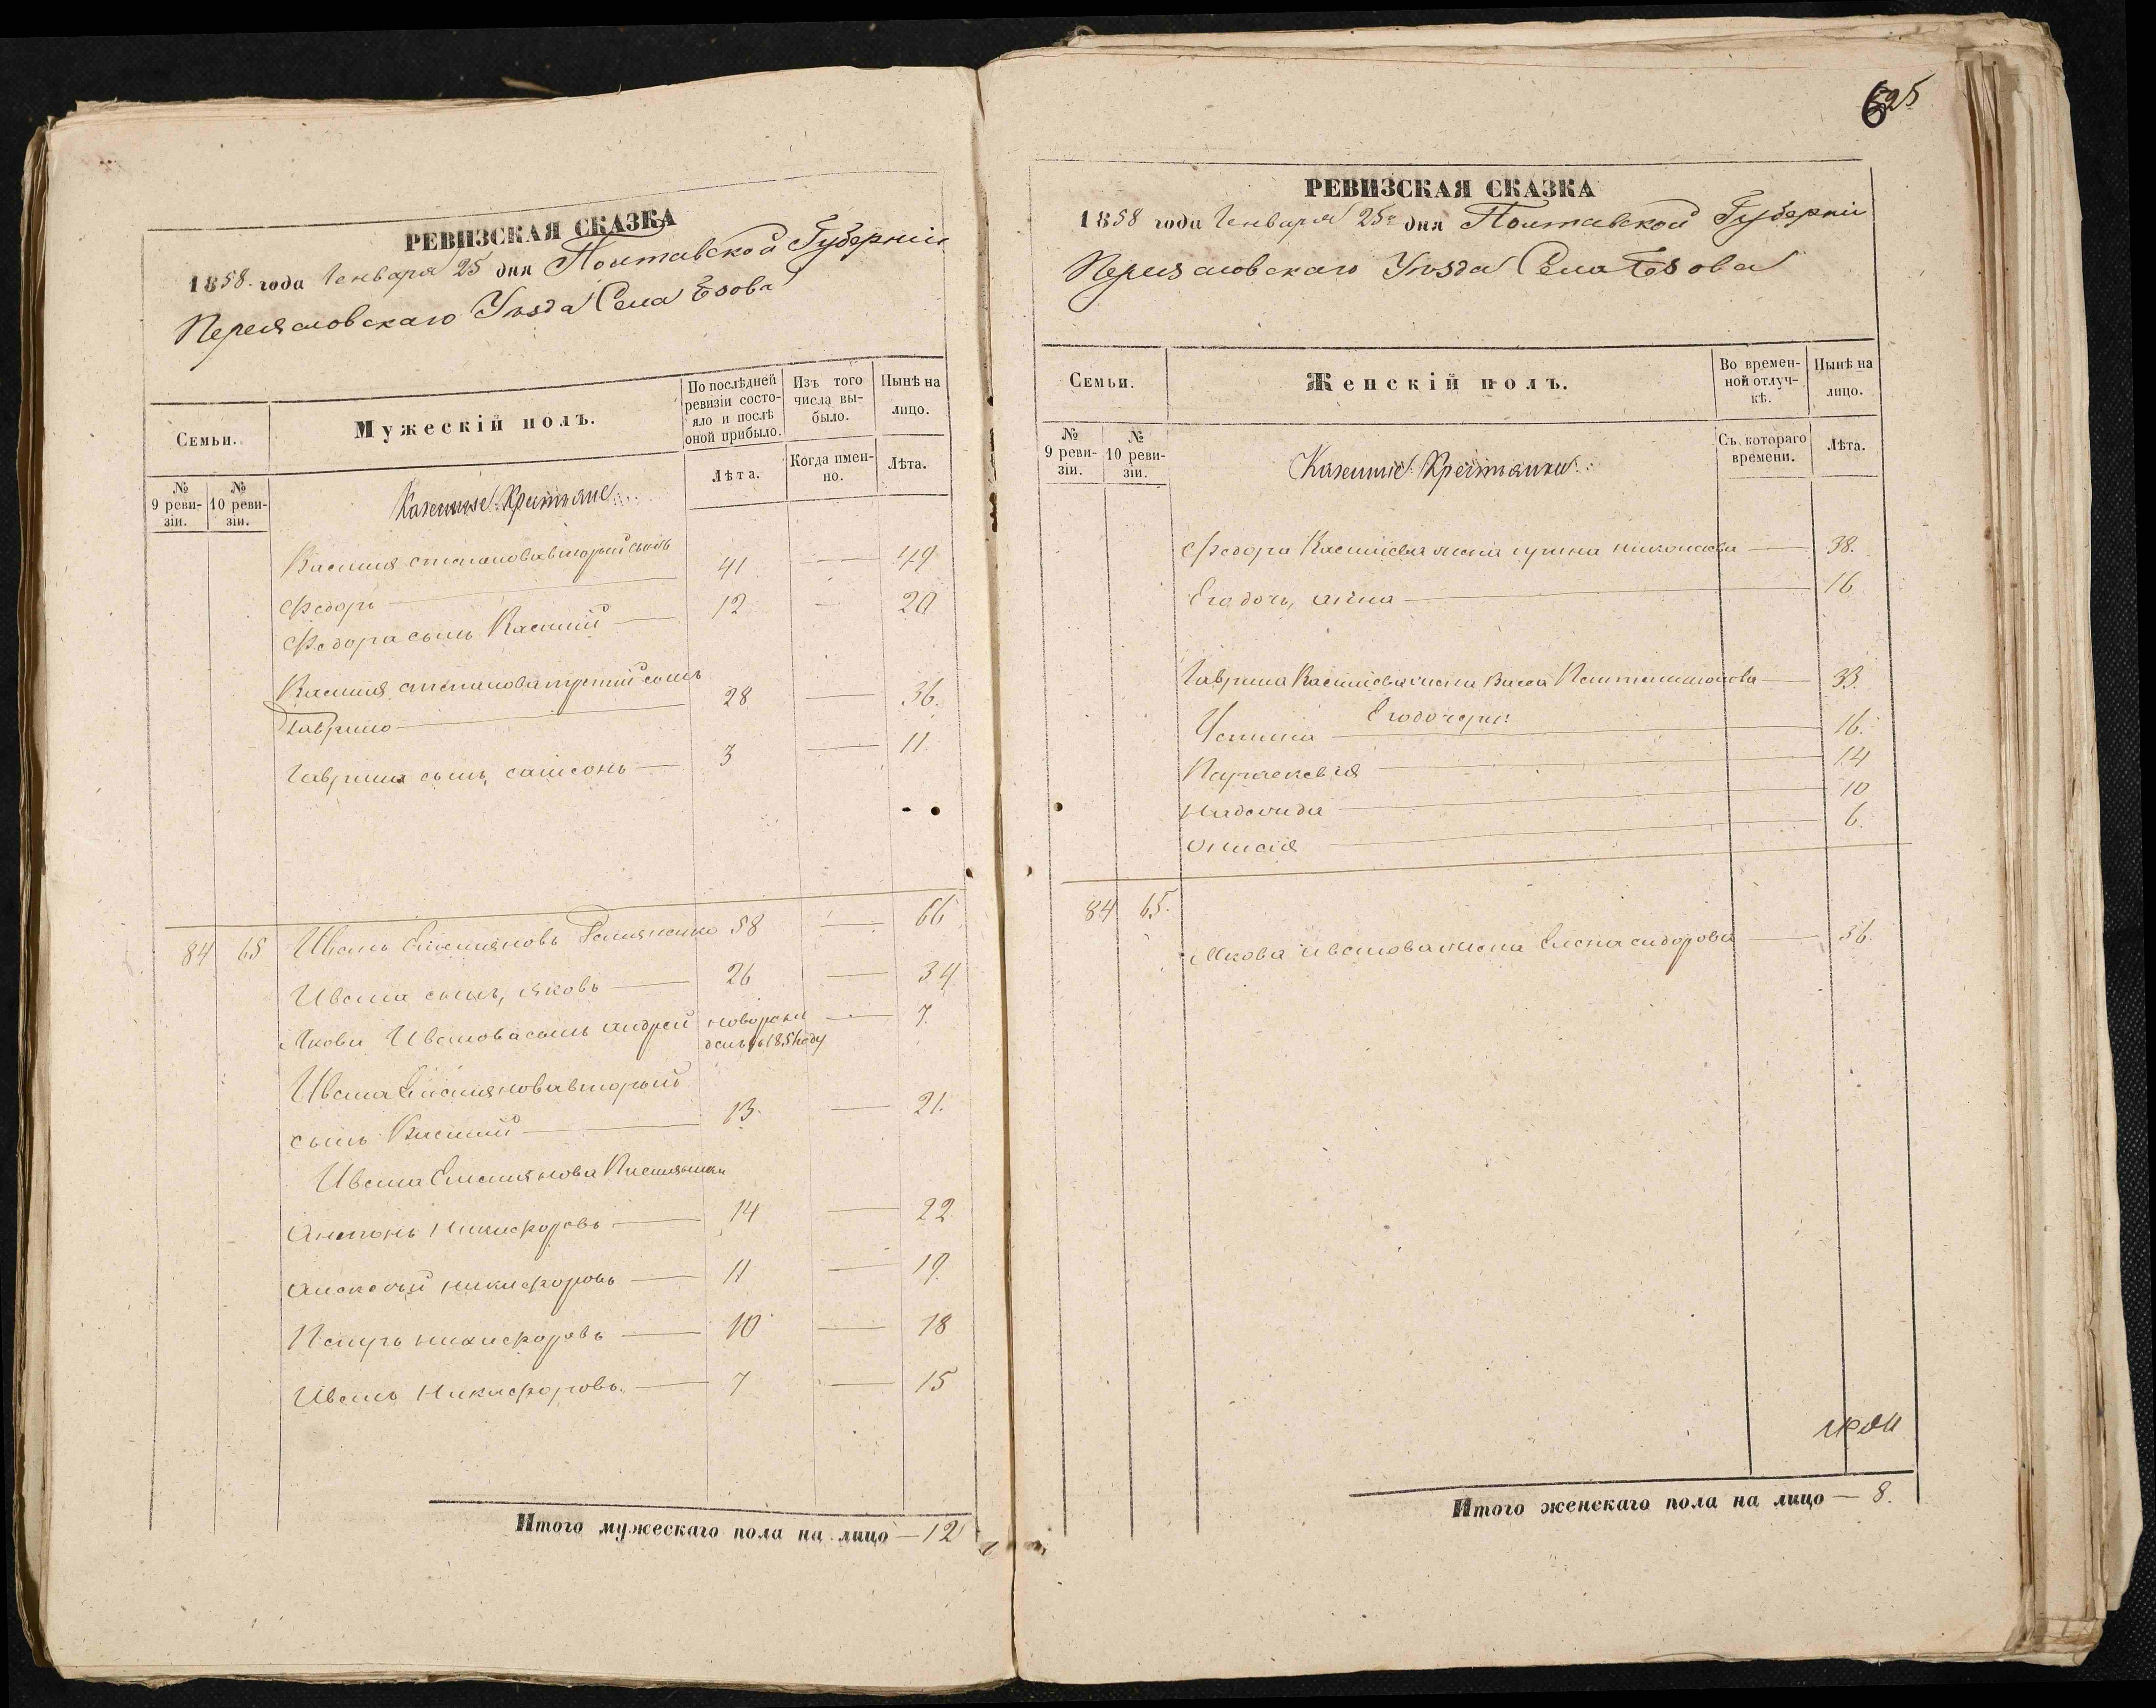 РЕВИЗСКАЯ СКАЗКА
1858 года Генваря 25 дня Полтавской Губерніи
Переяславскаго Уѣзда Села
Семьи.
Мужескій полъ.
По послѣдней ревизіи состояло и послѣ оной прибыло.
Изъ того числа выбыло.
Нынѣ на лицо.
№ 9 ревизіи.
№ 10 ревизіи.
Казенные Крестьяне
Лѣта.
Когда именно.
Лѣта.
Василія Степанова вторый сынъ
Федоръ — 41 — 49
Федора сынъ Василій — 12 — 20
Василія Степанова третій сынъ
Гаврило — 28 — 36.
Гаврила сынъ, самсонъ — 3 — 11.
84 65 Иванъ Емельяновъ 58 — 66
Ивана сынъ, яковъ — 26 — 34
Якова Иванова сынъ андрей новорож — 7.
денъ въ 1851 году
Ивана Емельянова вторый
сынъ Василий — 13. — 21.
Ивана Емельянова
Антонъ Никифоровъ — 14 — 22.
Алексѣй Никифоровъ — 11 — 19
Петръ никифоровъ — 10 — 18
Иванъ Никифоровъ. — 7 — 15
Итого мужескаго пола на лицо — 12
625
РЕВИЗСКАЯ СКАЗКА
1858 года Генваря 25го дня Полтавской Губерніи
Переяславскаго Уѣзда Села
Семьи.
Женскій полъ.
Во временной отлучкѣ.
Нынѣ на лицо.
№ 9 ревизіи.
№ 10 ревизіи.
Казенные Крестьянки
Съ котораго времени.
Лѣта.
Федора Василіева жена ирина николаева — 38.
Его дочь, анна — 16
Гаврила Василіева жена Васса Пантелимонова — 33.
Его дочери:
16.
Параскевія — 14
10
6.
84 65.
Якова иванова жена Елена сидорова — 36.
Итого женскаго пола на лицо — 8.